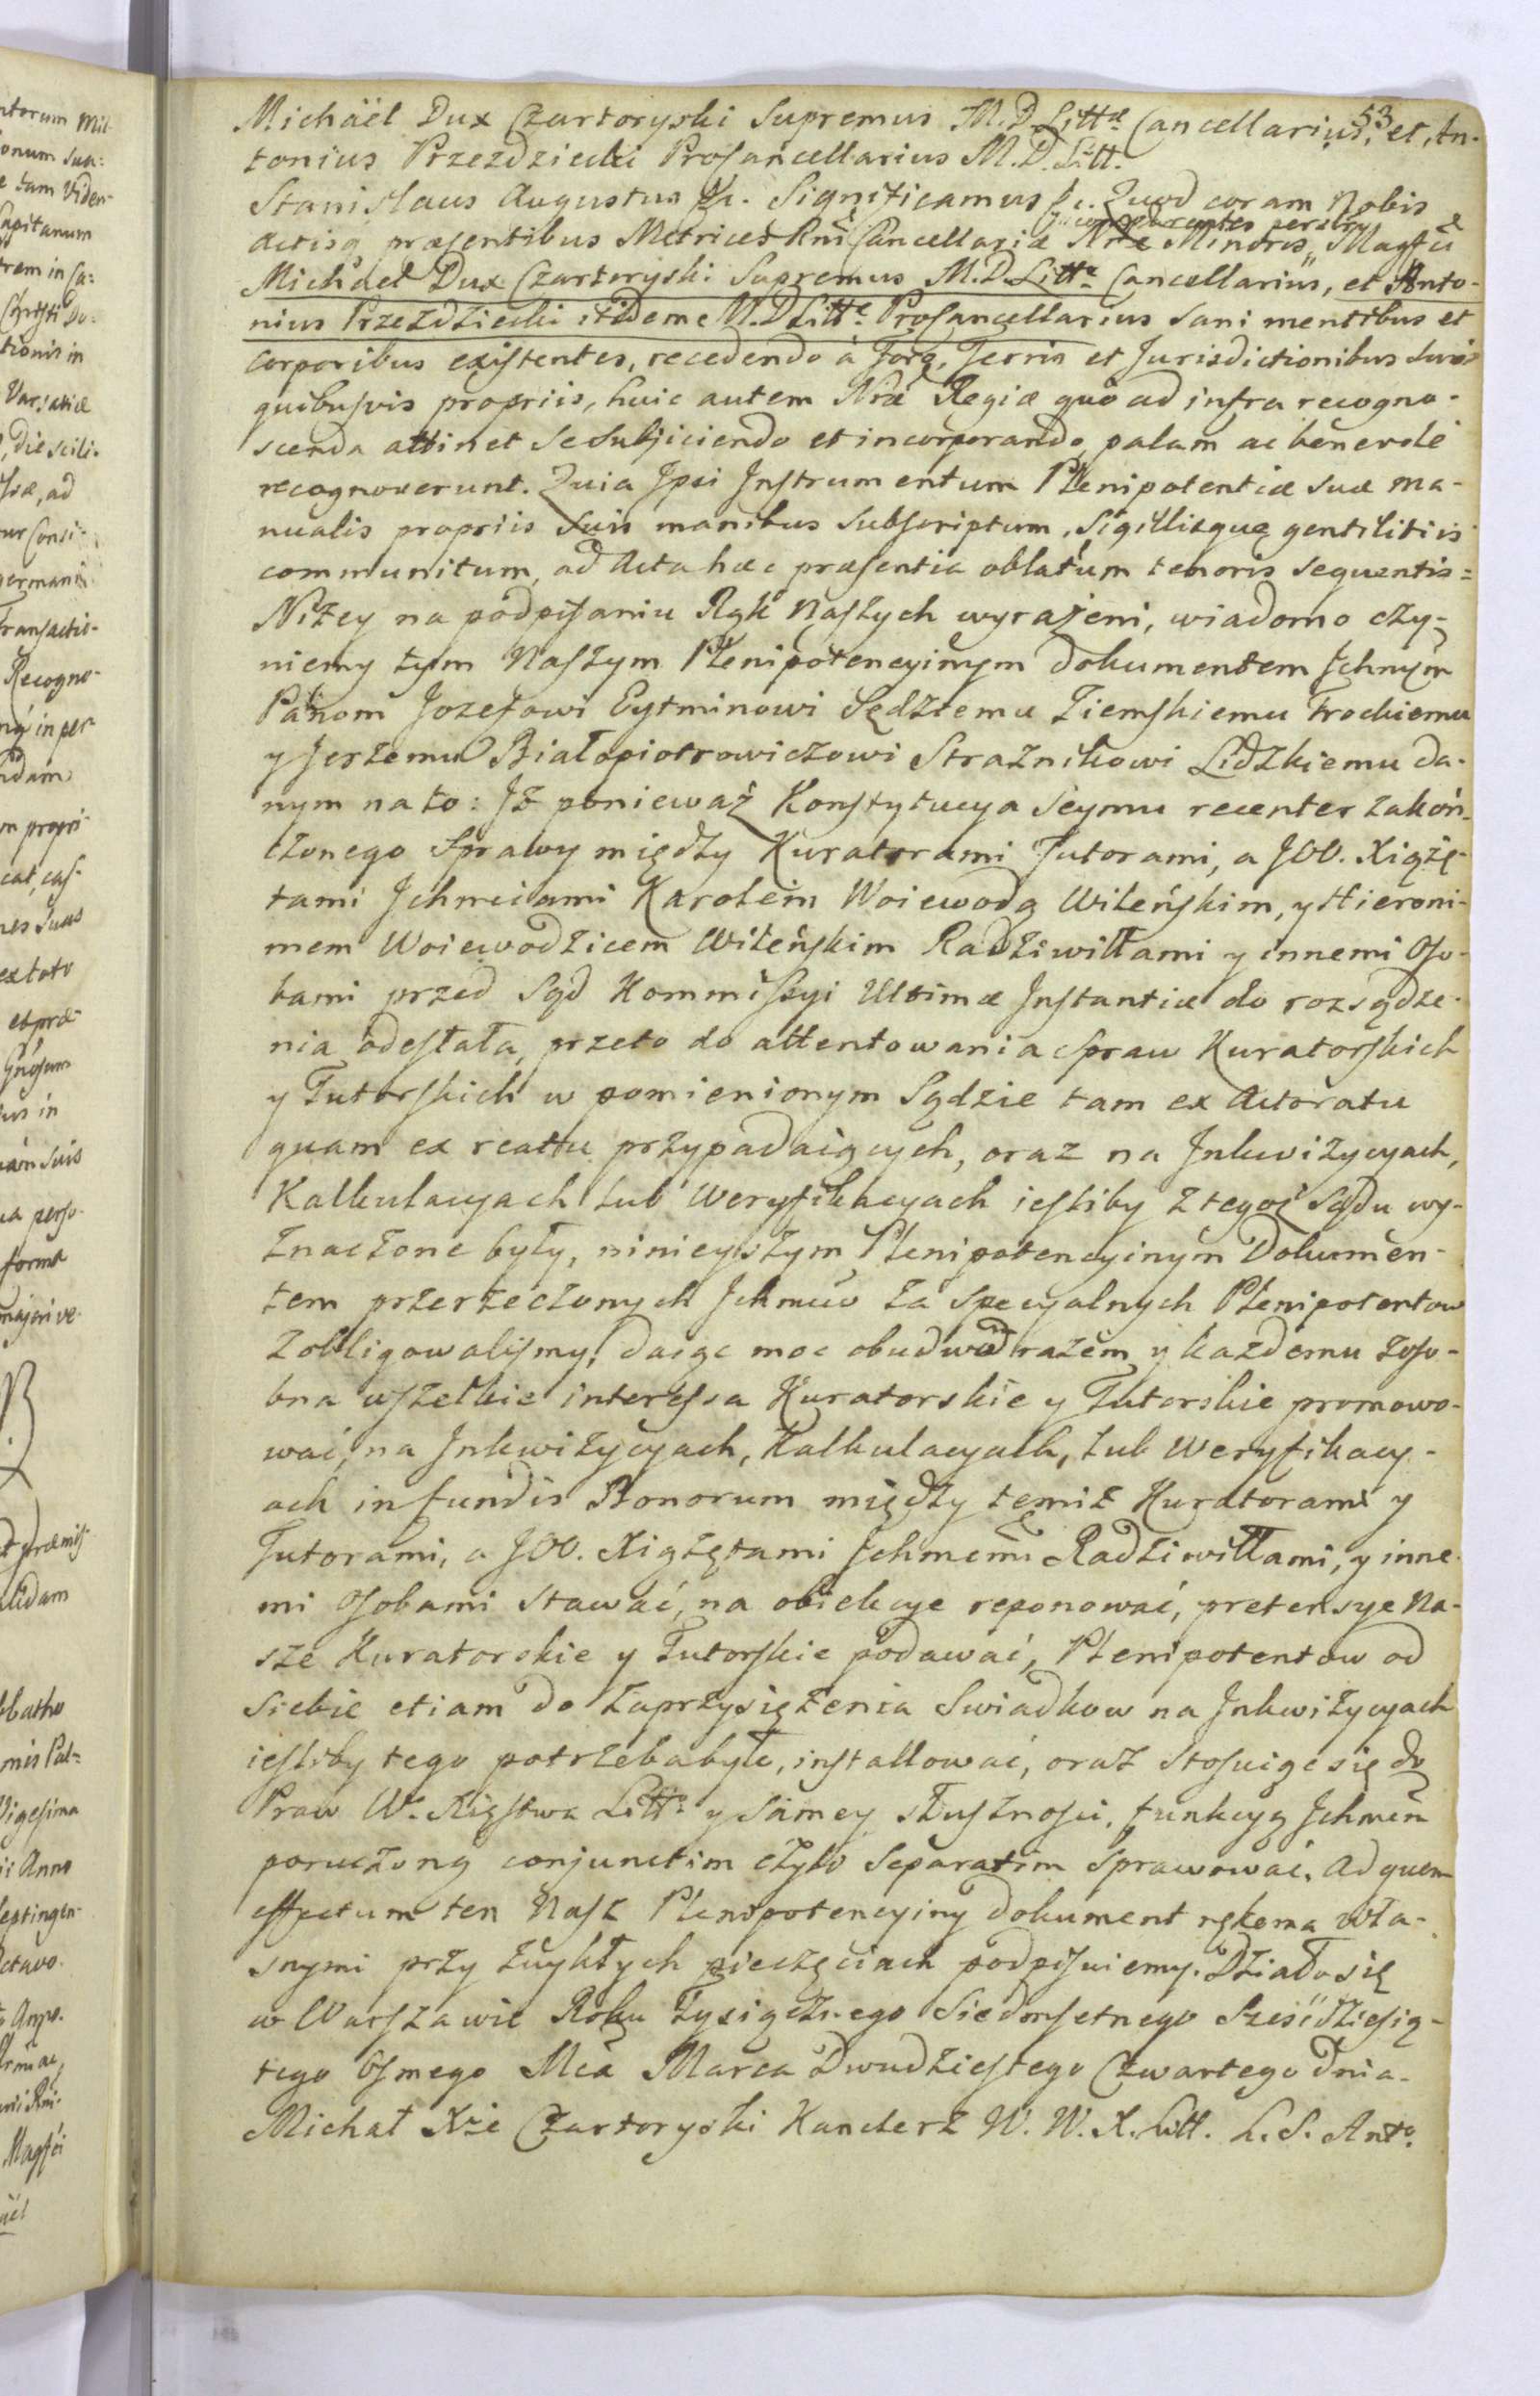 53
Michäel Dux Czartoryski Supremus M.D.Littæ Cancellarius, et An-
tonius Przezdziecki Procancellarius M.D.Litt.
Stanislaus Augustus &c. Significamus &c. Quod coram Nobis
Actisq præsentibus Metrices Rni Cancellariæ Nræ Minoris,, Magfci
comparentes personlr
Michäel Dux Czartoryski Supremus M.D.Littæ Cancellarius, et Anto-
nius Przezdziecki itidem M.D Littæ Procancellarius sani mentibus et
corporibus existentes, recedendo à Foro, Terris et Jurisdictionibus suis
quibusvis propriis, huic autem Nræ Regiæ quò ad infra recogno-
scenda attinet se subjiciendo et incorporando, palam ac benevolè
recognoverunt. Quia Ipsi Instrumentum Plenipotentiæ suæ ma-
nualis propriis suis manibus subscriptum, sigillisque gentilitiis
communitum, ad Acta hæc præsentia oblatum tenoris sequentis=
Niżey na podpisaniu Rąk naszych wyrażeni, wiadomo czy-
niemy tym Naszym Plenipotencyinym dokumentem Ichmćm
Panom Jozefowi Eytminowi Sędziemu Ziemskiemu Trockiemu
y Jerzemu Białopiotrowiczowi Strażnikowi Lidzkiemu da-
nym na to: Iż ponieważ Konstytucya Seymu recenter zakoń-
czonego Sprawy między Kuratorami Tutorami, a JOO. Xiążę-
tami Ichmciami Karolem Woiewodą Wileńskim, y Hieroni-
mem Woiewodzicem Wileńskim Radziwiłłami y innemi Oso-
bami przed Sąd Kommissyi Ultimæ Instantiæ do rozsądze-
nia odesłała, przeto do attentowania spraw Kuratorskich
y Tutorskich w pomienionym Sądzie tam ex Actoratu
quam ex reattu przypadaiących, oraz na Inkwizycyach,
Kalkulacyach lub Weryfikacyach iesliby z tegoż Sądu wy-
znaczone były, ninieyszym Plenipotencyinym Dokumen-
tem przerzeczonych Ichmćiow za specyalnych Plenipotentow
zobligowalismy, daiąc moc obudwom razem y każdemu zoso-
bna wszelkie interessa Kuratorskie y Tutorskie promowo-
wać, na Inkwizycyach, Kalkulacyach, lub Weryfikacy-
ach in fundis Bonorum między temiż Kuratorami y
Tutorami, a JOO. Xiążętami Ichmćmi Radziwiłłami, y inne-
mi Osobami stawać, na obiekcye reponować, pretensye Na-
sze Kuratorskie y Tutorskie podawać, Plenipotentow od
siebie etiam do zaprzysiężenia Swiadkow na Inkwizycyach
iesliby tego potrzeba była, installować, oraz stosuiąc się do
Praw W. Xięstwa Littgo y samey słuszności, funkcyą Ichmćm
poruczoną conjunctim czyli separatim sprawować. Ad quem
effectum ten Nasz Plenipotencyiny dokument rękoma wła-
snymi przy zwykłych pieczęciach podpisuiemy. Działo się
w Warszawie Roku Tysiącznego Siedmsetnego Sześćdziesią-
tego Osmego Mca Marca Dwudziestego Czwartego dnia.
Michał Xże Czartoryski Kanclerz W. W. X. Litt. L.S. Anto